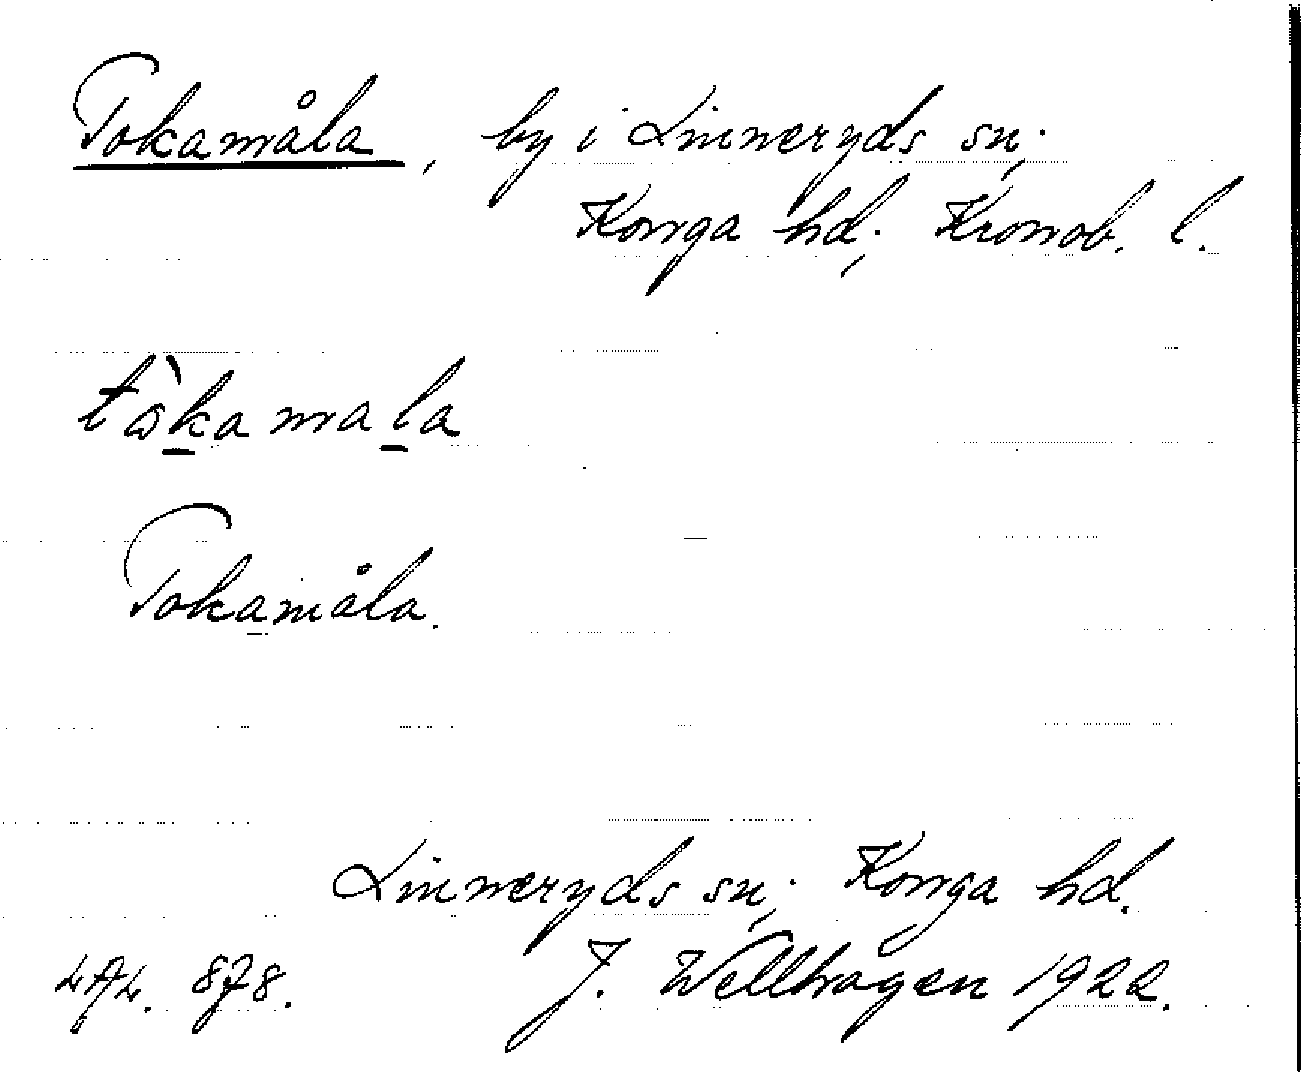 Tokamåla, by i Linneryds sn;
Konga hd; Kronob. l.
tòkamala
Tokamåla.
Linneryds sn; Konga hd.
LAL. 878. J. Wellhagen 1922.